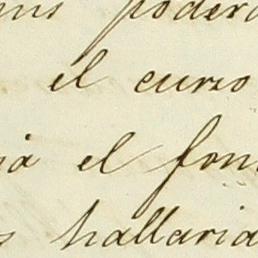 podera
el curso
el fon
hallaria